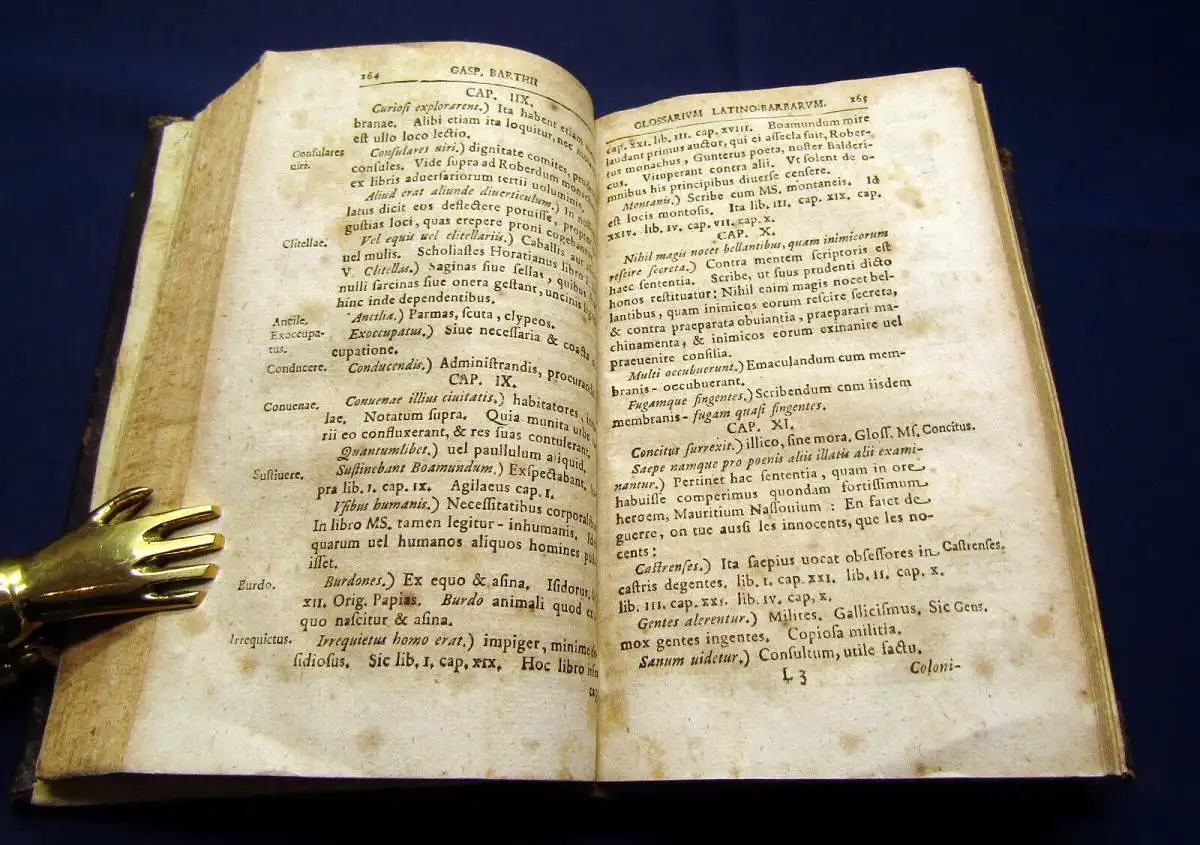 164 GASP. BARTHII
CAP. IIX.
Curiosi explorarent.) Ita habent etiam
branae. Alibi etiam ita loquitur, nec
est ullo loco lectio.
Consulares uiri.
Consulares uiri.) dignitate comites,
consules. Vide supra ad Roberdum
ex libris aduersariorum tertii uoluminis.
Aliud erat aliunde diuerticulum.) In
latus dicit eos deflectere potuisse,
gustias loci, quas erepere proni
Clitellae.
Vel equis uel clitellariis.) Caballis aut
uel mulis. Scholiastes Horatianus libro
V. Clitellas.) Saginas siue sellas, quibus
nulli sarcinas siue onera gestant, uncinis
hinc inde dependentibus.
Ancile.
Ancilia.) Parmas, scuta, clypeos.
Exoccupatus.
Exoccupatus.) Siue necessaria & coacta
cupatione.
Conducere.
Conducendis.) Administrandis,
CAP. IX.
Conuenae.
Conuenae illius ciuitatis.) habitatores,
lae. Notatum supra. Quia munita urbe
rii eo confluxerant, & res suas contulerant.
Quantumlibet.) uel paullulum aliquid.
Sustinere.
Sustinebant Boamundum.) Exspectabant.
pra lib. I. cap. IX. Agilaeus cap. I.
Vsibus humanis.) Necessitatibus
In libro MS. tamen legitur - inhumanis.
quarum uel humanos aliquos homines
isset.
Burdo.
Burdones.) Ex equo & asina. Isidorus.
XII. Orig. Papias. Burdo animali quod ex
quo nascitur & asina.
Irrequietus.
Irrequietus homo erat.) impiger, minime
sidiosus. Sic lib. I. cap. XIX. Hoc libro
GLOSSARIVM LATINO-BARBARVM. 165
cap. XXI. lib. III. cap. XVIII. Boamundum mire
laudant primus auctor, qui ei assecla fuit, Rober-
tus monachus, Gunterus poeta, noster Balderi-
cus. Vituperant contra alii. Vt solent de o-
mnibus his principibus diuerse censere.
Montanis.) Scribe cum MS. montaneis. Id
est locis montosis. Ita lib. III. cap. XIX. cap.
XXIV. lib. IV. cap. VII. cap. X.
CAP. X.
Nihil magis nocet bellantibus, quam inimicorum
rescire secreta.) Contra mentem scriptoris est
haec sententia. Scribe, ut suus prudenti dicto
honos restituatur: Nihil enim magis nocet bel-
lantibus, quam inimicos eorum rescire secreta,
& contra praeparata obuiantia, praeparari ma-
chinamenta, & inimicos eorum exinanire uel
praeuenire consilia.
Multi occubuerunt.) Emaculandum cum mem-
branis - occubuerant.
Fugamque fingentes.) Scribendum cum iisdem
membranis - fugam quasi fingentes.
CAP. XI.
Concitus surrexit.) illico, sine mora. Gloss. Ms. Concitus.
Saepe namque pro poenis aliis illatis alii exami-
nantur.) Pertinet hac sententia, quam in ore
habuisse comperimus quondam fortissimum
heroem, Mauritium Nassouium: En faict de
guerre, on tue aussi les innocents, que les no-
cents:
Castrenses.) Ita saepius uocat obsessores in Castrenses.
castris degentes. lib. I. cap. XXI. lib. II. cap. X.
lib. III. cap. XXI. lib. IV. cap, X.
Gentes alerentur.) Milites. Gallicismus. Sic Gens.
mox gentes ingentes. Copiosa militia.
Sanum uidetur.) Consultum, utile factu.
L 3 Coloni-